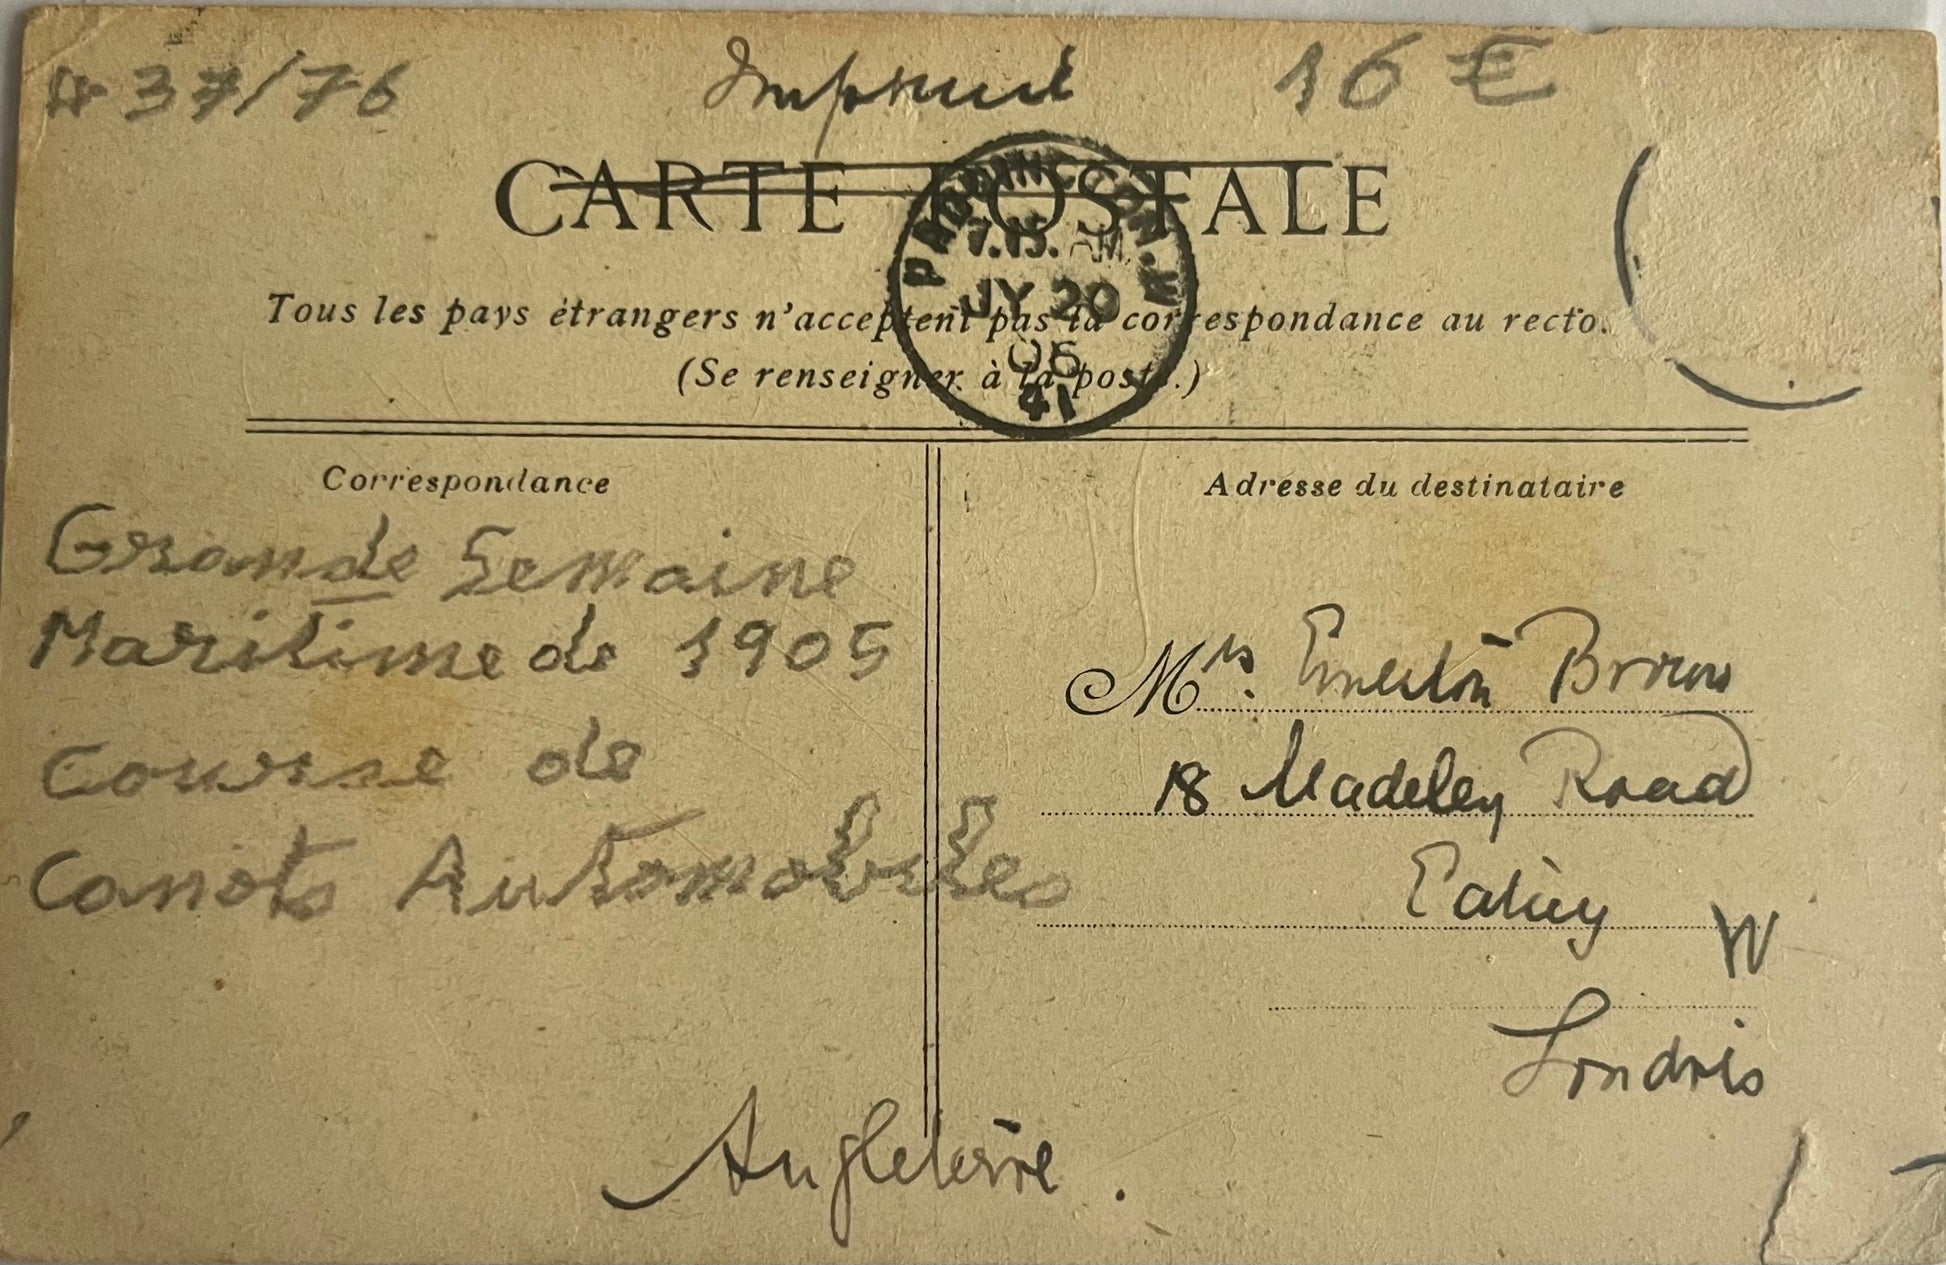 # 37/76 Imprimé 16 €
CARTE POSTALE
PADDINGTON.W.
7.15.AM.
JY 20
05
41
Tous les pays étrangers n'acceptent pas la correspondance au recto.
(Se renseigner à la poste.)
Correspondance
Grande Semaine
Maritime de 1905
Course de
Canots Automobiles
Adresse du destinataire
Mrs. Brown
18 Madeley Road
Ealing W
Londres
Angleterre.